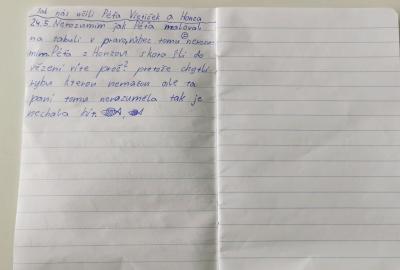 Jak nás učili Péťa Vlčíček a Honza
24.5. Nerozumím jak Péťa malovali
na tabuli v pravo, vůbec tomu nerozu-
mím. Péťa z Honzou skoro šli do
vězení víte proč? protože chytli
rybu kterou nemaou ale ta
paní tomu nerozuměla tak je
nechala bít.